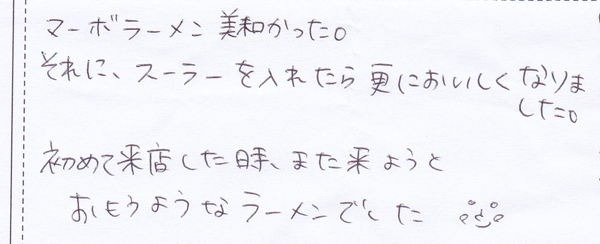 マーボラーメン 美和かった。
それに、スーラーを入れたら更においしくなりま
した。
初めて来店した時、また来ようと
おもうようなラーメンでした